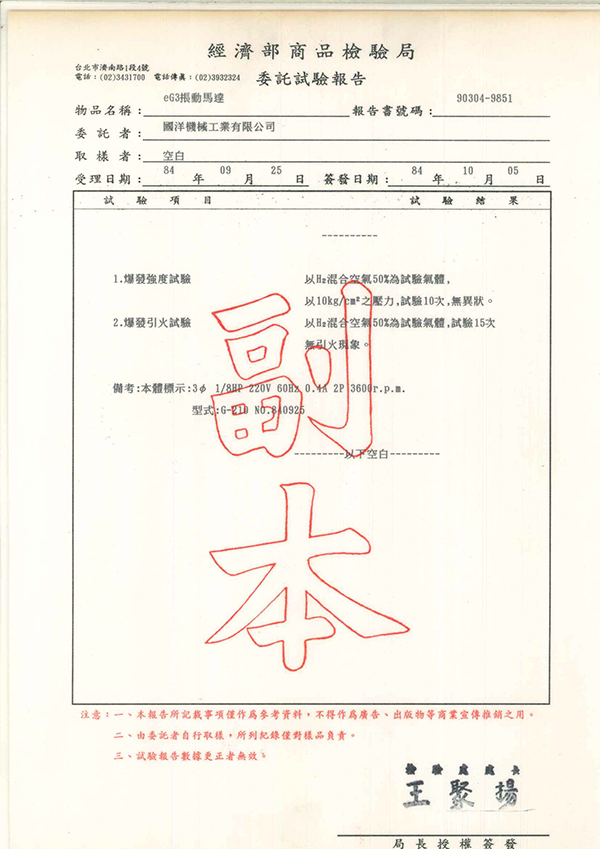 經濟部商品檢驗局
台北市濟南路1段4號
電話：(02)3431700 電話傳真：(02)3932324
委託試驗報告
物品名稱： eG3振動馬達 報告書號碼： 90304-9851
委託者： 國洋機械工業有限公司
取樣者： 空白
受理日期： 84 年 09 月 25 日 簽發日期： 84 年 10 月 05 日
試驗項目 試驗結果
----------
1.爆發強度試驗 以H₂混合空氣50%為試驗氣體,
以10kg/cm²之壓力,試驗10次,無異狀。
2.爆發引火試驗 以H₂混合空氣50%為試驗氣體,試驗15次
無引火現象。
備考:本體標示:3φ 1/8HP 220V 60Hz 0.4A 2P 3600r.p.m.
型式:G-210 NO.840925
----------以下空白----------
副本
注意：一、本報告所記載事項僅作為參考資料，不得作為廣告、出版物等商業宣傳推銷之用。
二、由委託者自行取樣，所列紀錄僅對樣品負責。
三、試驗報告數據更正者無效。
檢驗處處長
王聚揚
局長授權簽發